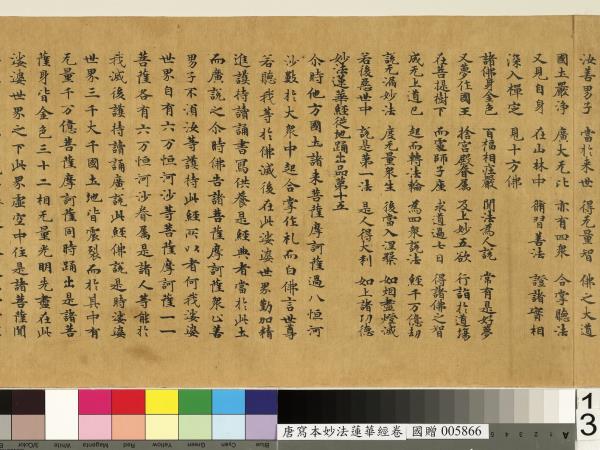 汝善男子 當於来世 得无量智 佛之大道
國土嚴淨 廣大无比 亦有四衆 合掌聽法
又見自身 在山林中 脩習善法 證諸實相
深入禪定 見十方佛
諸佛身金色 百福相莊嚴 聞法為人說 常有是好夢
又夢作國王 捨宮殿眷属 及上妙五欲 行詣於道場
在菩提樹下 而處師子座 求道過七日 得諸佛之智
成无上道已 起而轉法輪 為四衆說法 經千万億劫
說无漏妙法 度无量衆生 後當入涅槃 如烟盡燈滅
若後惡世中 說是第一法 是人得大利 如上諸功德
妙法蓮華經從地踊出品第十五
尒時他方國土諸来菩薩摩訶薩過八恒河
沙數於大衆中起合掌作礼而白佛言世尊
若聽我等於佛滅後在此娑婆世界勤加精
進護持讀誦書寫供養是經典者當於此土
而廣說之尒時佛告諸菩薩摩訶薩衆止善
男子不湏汝等護持此經所以者何我娑婆
世界自有六万恒河沙等菩薩摩訶薩一一
菩薩各有六万恒河沙眷属是諸人等能於
我滅後護持讀誦廣說此經佛說是時娑婆
世界三千大千國土地皆震裂而於其中有
无量千万億菩薩摩訶薩同時踊出是諸菩
薩身皆金色三十二相无量光明先盡在此
娑婆世界之下此界虛空中住是諸菩薩聞
3/Color White Magenta Red Yellow Green Cyan Blue
唐寫本妙法蓮華經卷 國贈 005866
A
13